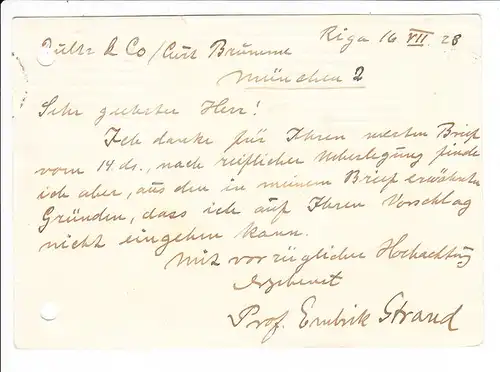 Riga 16. VII. 28
& Co / Curt Brumme
München 2
Sehr geehrter Herr!
Ich danke für Ihren werten Brief
vom 14. ds., nach reiflicher Ueberlegung finde
ich aber, aus den in meinem Brief erwähnten
Gründen, dass ich auf Ihren Vorschlag
nicht eingehen kann.
Mit vorzüglicher Hochachtung
ergebenst
Prof. Embrik Strand